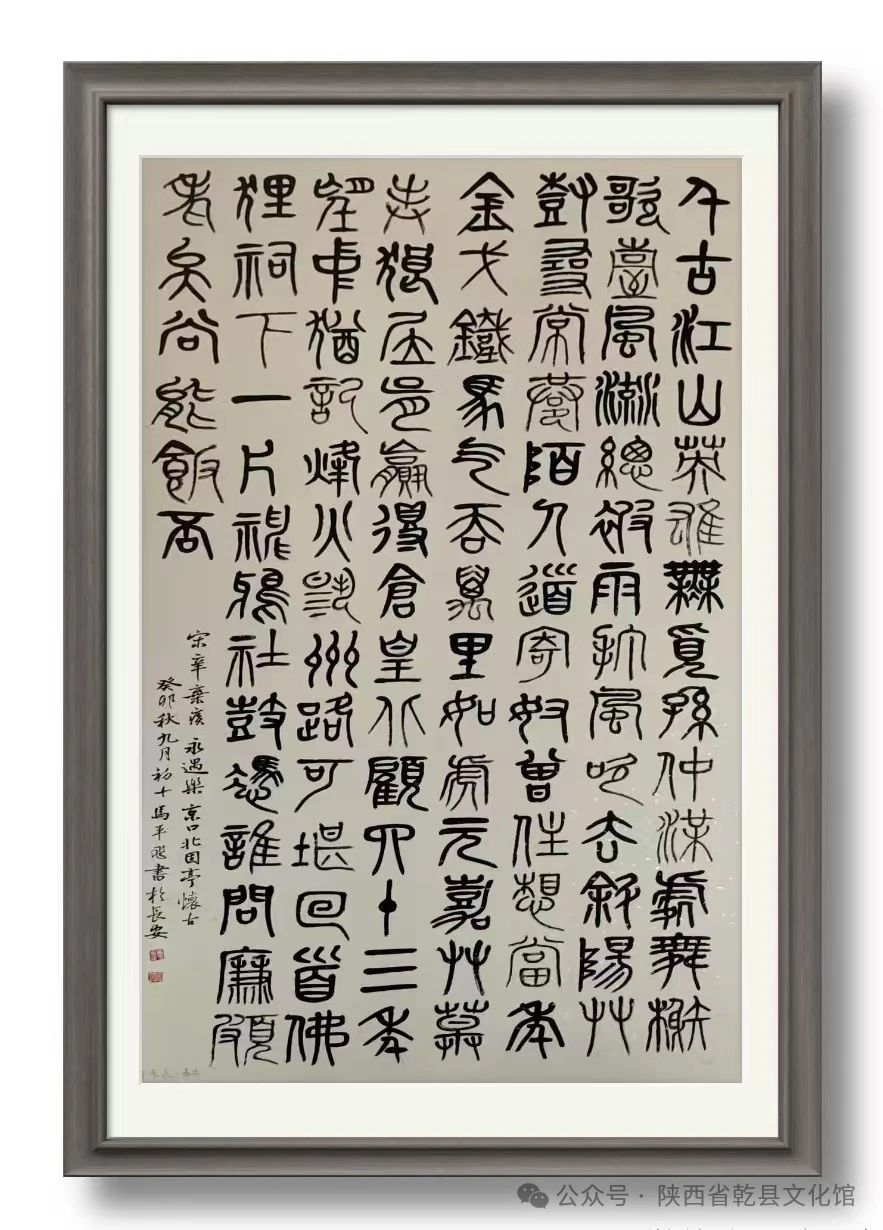 千古江山英雄無覓孫仲謀處舞榭
歌臺風流總被雨打風吹去斜陽艸
尌尋常巷陌人道寄奴曾住想當年
金戈鐵馬气吞萬里如虎元嘉艸草
封狼居胥贏得倉皇北顧四十三年
望中猶記烽火揚州路可堪回首佛
狸祠下一片神鴉社鼓憑誰問廉頗
老矣尚能飯否
宋辛棄疾永遇樂京口北固亭懷古
癸卯秋九月初十馬平書於長安
公众号·陕西省乾县文化馆